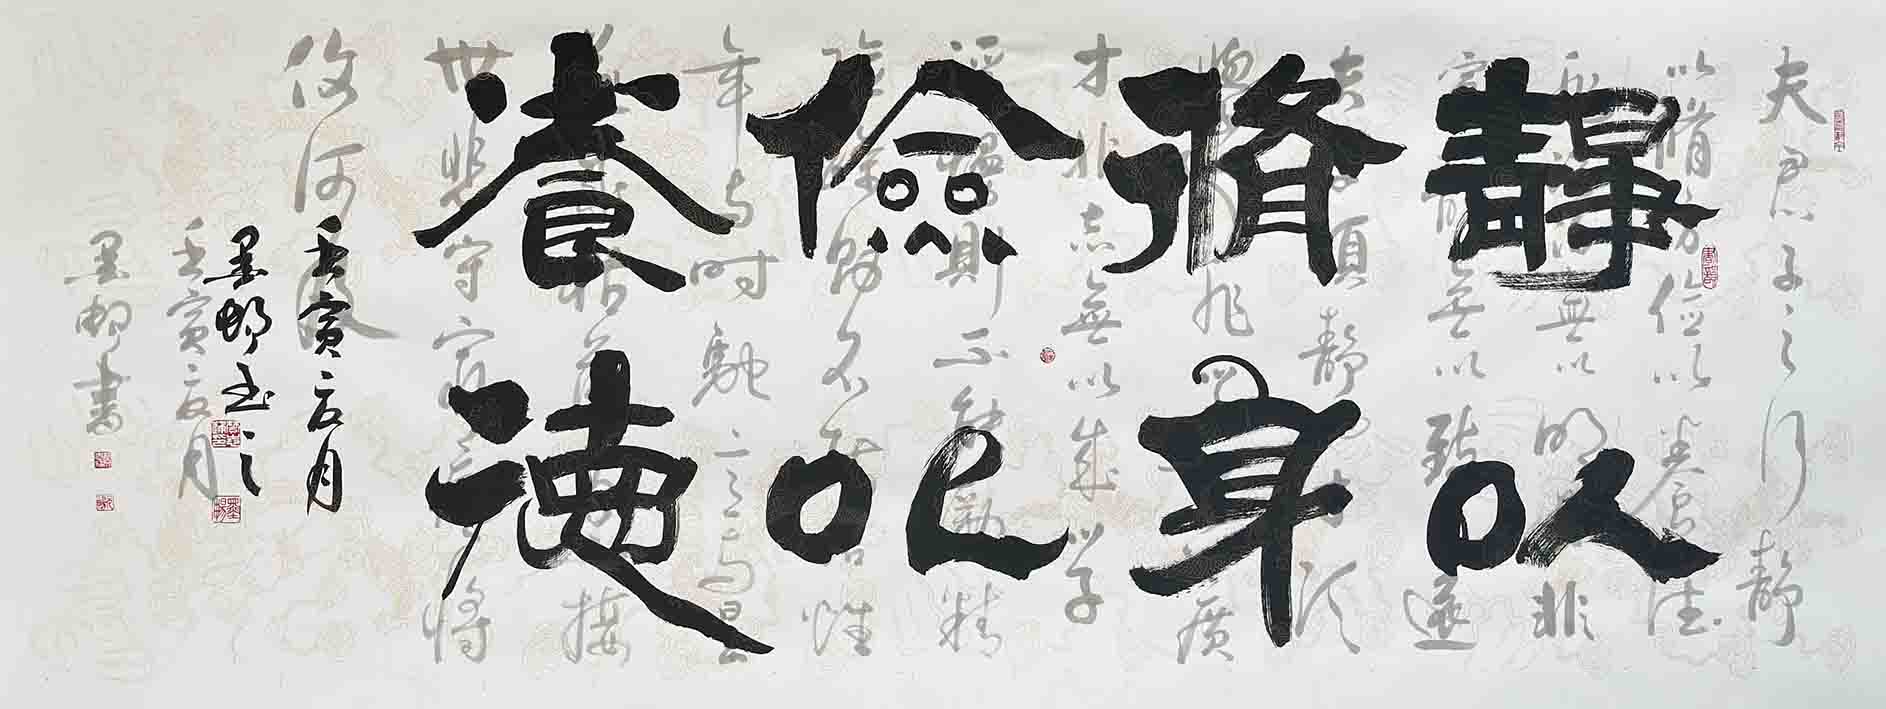 靜以
脩身
儉以
養德
壬寅夏月
墨邨書之
夫君子之行靜
以脩身儉以養德
無以明非
靜無以致遠
夫學須靜也才須
學也非學無以廣
才非志無以成學
淫慢則不能勵精
險躁則不能冶性
年與時馳意與日
枯落多不接
世悲守窮廬將
復何及
壬寅夏月
墨邨書